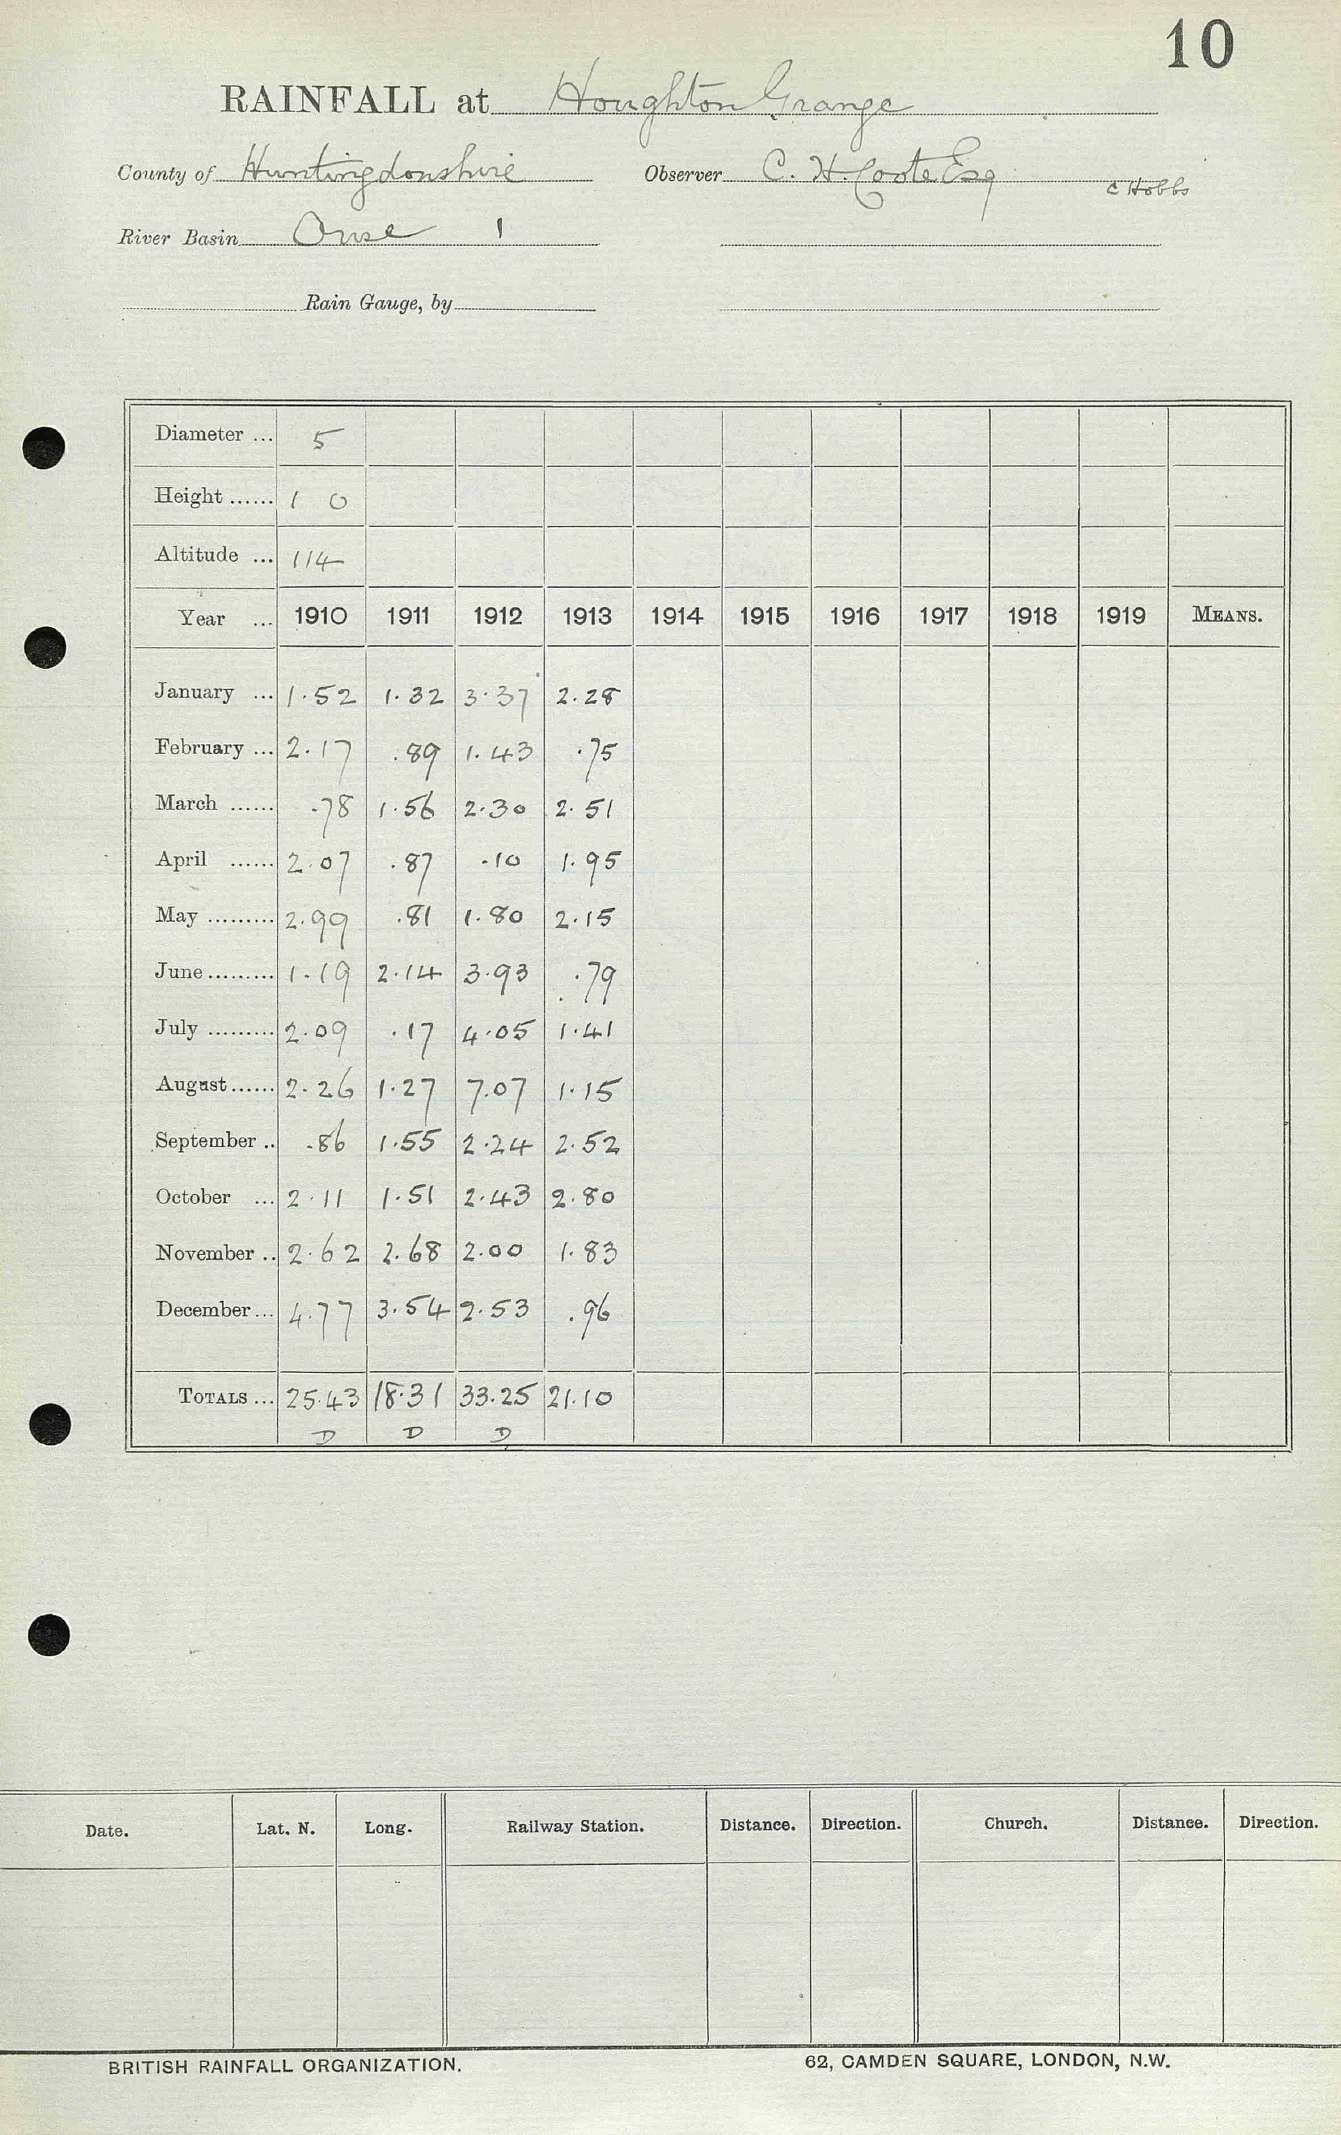 10
RAINFALL at Houghton Grange
County of Huntingdonshire Observer C. H. Coote Esq C Hobbs
River Basin Ouse 1
Rain Gauge, by
Diameter ... 5
Height ...... 1 0
Altitude ... 114
Year ... 1910 1911 1912 1913 1914 1915 1916 1917 1918 1919 MEANS.
January ... 1.52 1.32 3.37 2.28
February ... 2.17 .89 1.43 .75
March ...... .78 1.56 2.30 2.51
April ...... 2.07 .87 .10 1.95
May ......... 2.99 .81 1.80 2.15
June ......... 1.19 2.14 3.93 .79
July ......... 2.09 .17 4.05 1.41
August ...... 2.26 1.27 7.07 1.15
September .. .86 1.55 2.24 2.52
October ... 2.11 1.51 2.43 2.80
November .. 2.62 2.68 2.00 1.83
December ... 4.77 3.54 2.53 .96
TOTALS ... 25.43 18.31 33.25 21.10
D D D
Date. Lat. N. Long. Railway Station. Distance. Direction. Church. Distance. Direction.
BRITISH RAINFALL ORGANIZATION. 62, CAMDEN SQUARE, LONDON, N.W.